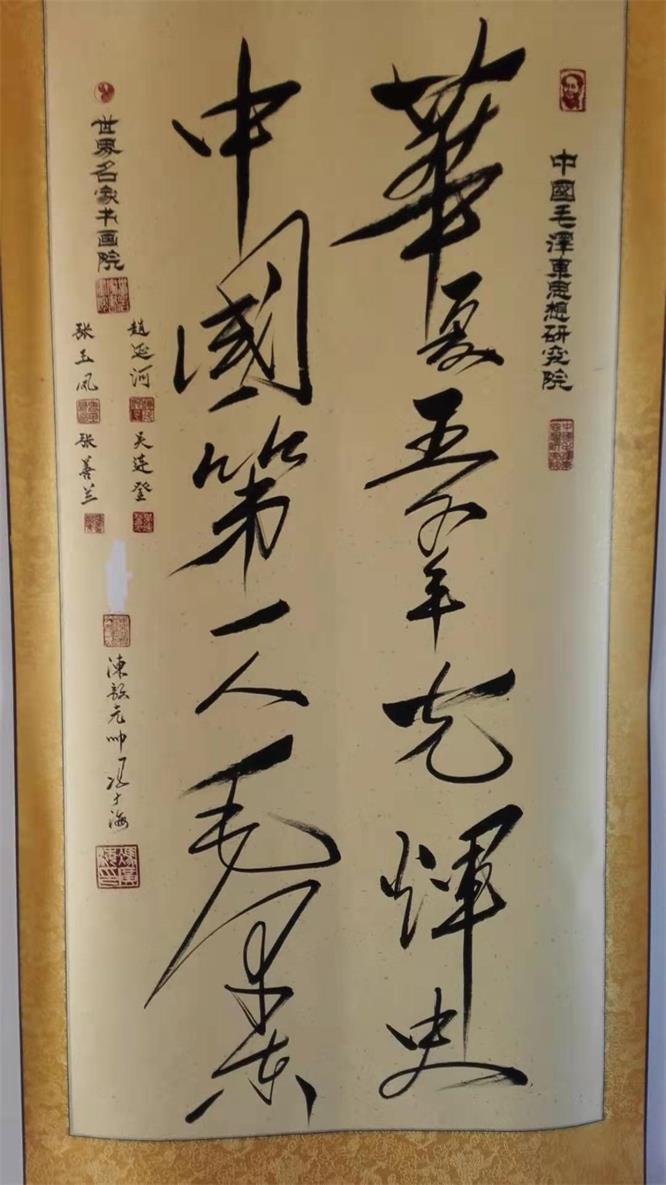 中國毛澤東思想研究院
華夏五千年光輝史
中國第一人毛澤東
世界名家书画院
趙延河
吴连登
张玉凤
张善兰
陳毅元帅